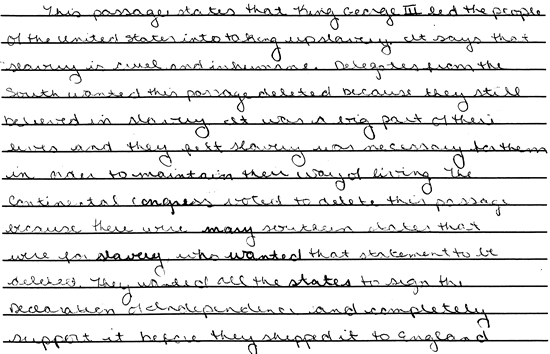 This passage states that King George III led the people
of the United States into taking up slavery. It says that
slavery is cruel and inhumane. Delegates from the
South wanted this passage deleted because they still
believed in slavery. It was a big part of their
lives and they felt slavery was necessary for them
in order to maintain their way of living. The
Continental Congress voted to delete this passage
because there were many southern states that
were for slavery who wanted that statement to be
deleted. They wanted all the states to sign the
Declaration of Independence and completely
support it before they shipped it to England